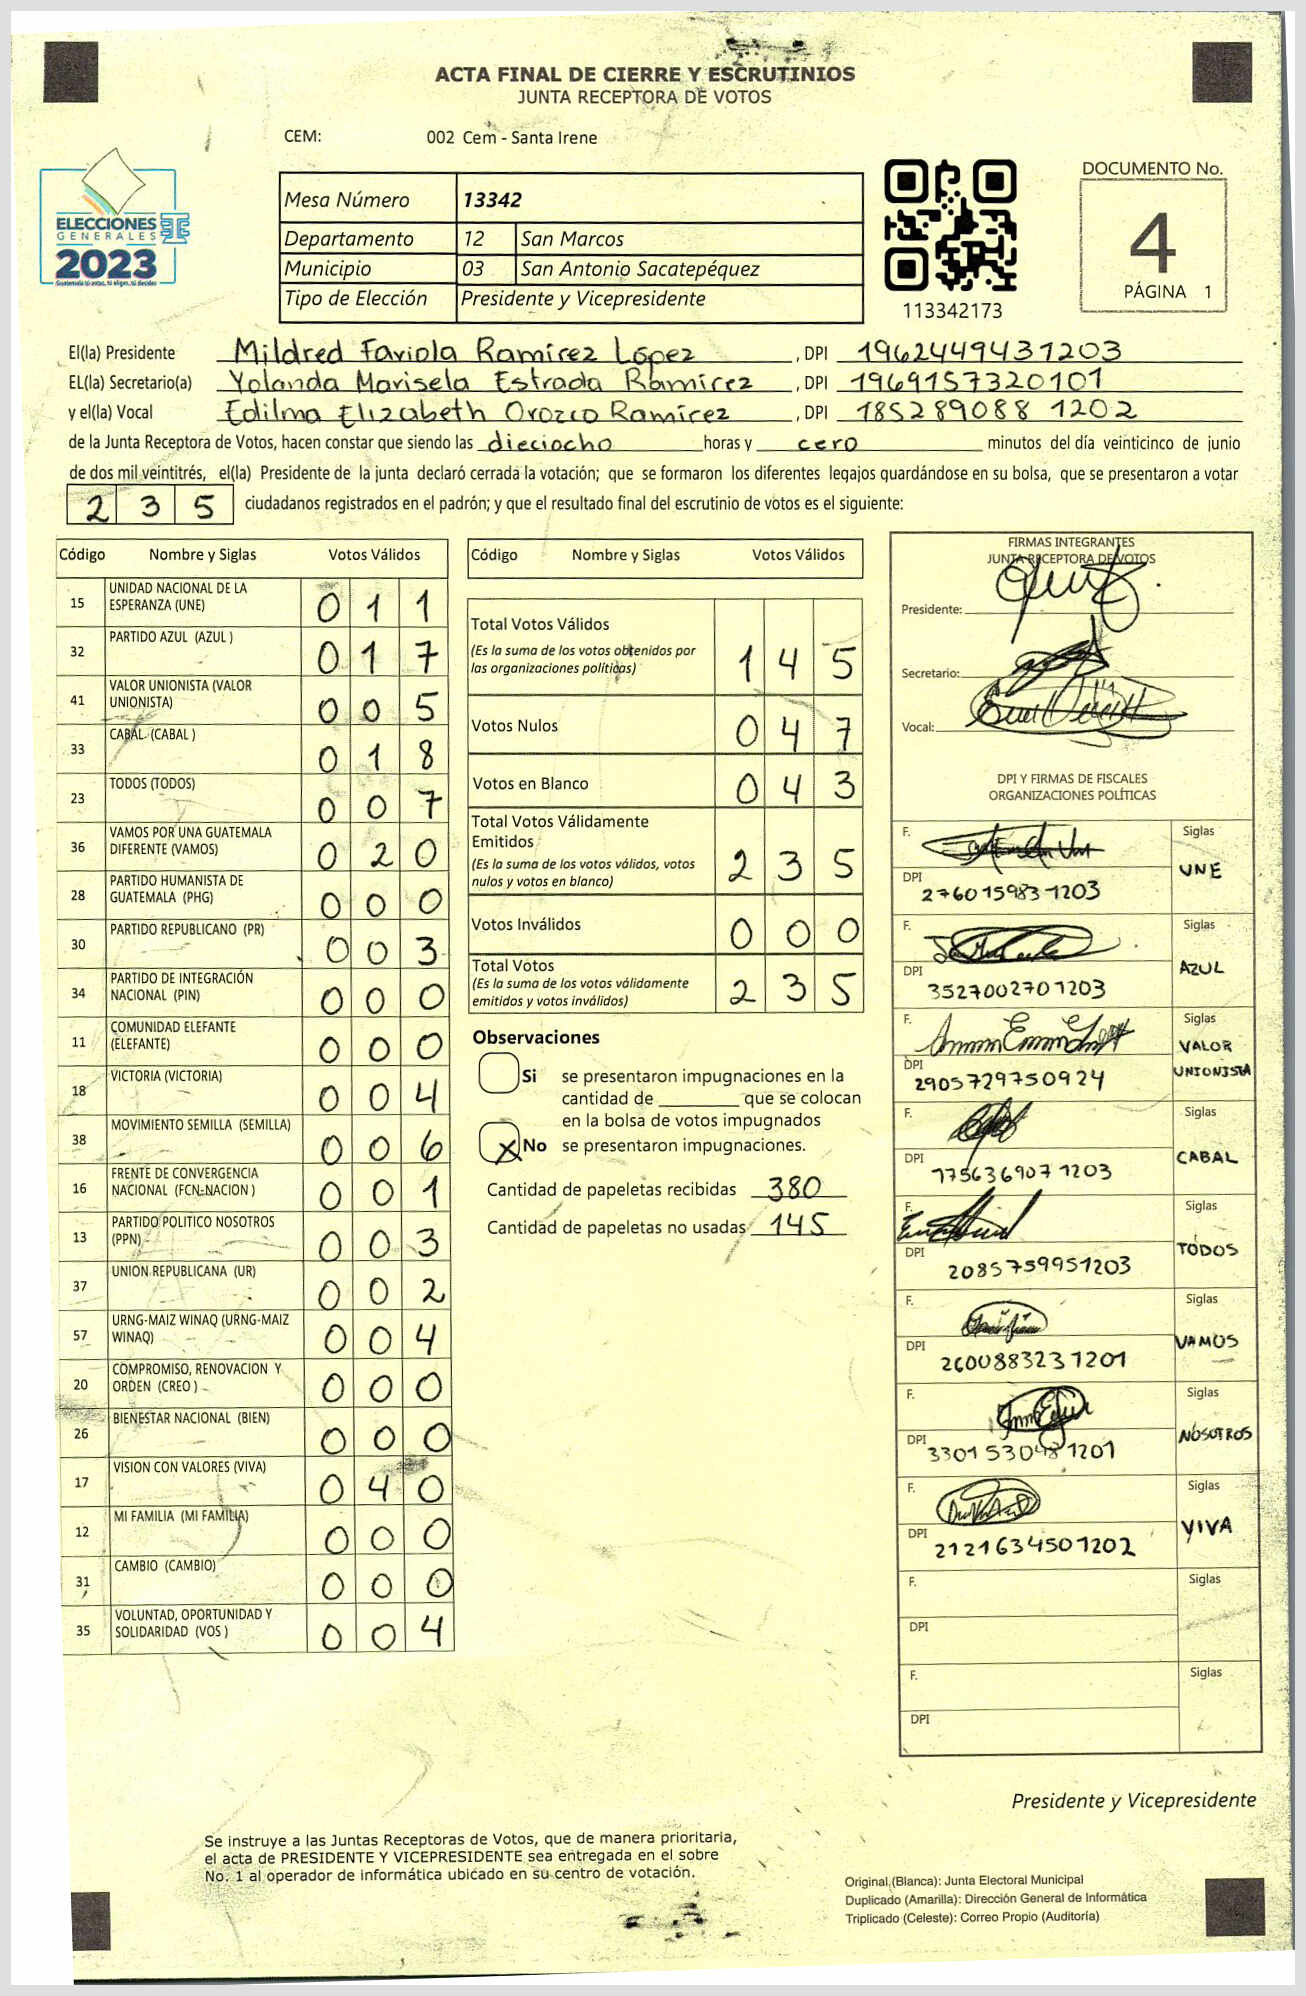 ACTA FINAL DE CIERRE Y ESCRUTINIOS
JUNTA RECEPTORA DE VOTOS
CEM: 002 Cem - Santa Irene
ELECCIONES
GENERALES
2023
Guatemala tú eres, tú eliges, tú decides
Mesa Número 13342
Departamento 12 San Marcos
Municipio 03 San Antonio Sacatepéquez
Tipo de Elección Presidente y Vicepresidente
113342173
DOCUMENTO No.
4
PÁGINA 1
El(la) Presidente Mildred Faviola Ramírez López, DPI 1962449431203
EL(la) Secretario(a) Yolanda Marisela Estrada Ramírez, DPI 1969157320101
y el(la) Vocal Edilma Elizabeth Orozco Ramírez, DPI 185289088 1202
de la Junta Receptora de Votos, hacen constar que siendo las dieciocho horas y cero minutos del día veinticinco de junio
de dos mil veintitrés, el(la) Presidente de la junta declaró cerrada la votación; que se formaron los diferentes legajos quardándose en su bolsa, que se presentaron a votar
2 3 5 ciudadanos registrados en el padrón; y que el resultado final del escrutinio de votos es el siguiente:
Código Nombre y Siglas Votos Válidos
15 UNIDAD NACIONAL DE LA ESPERANZA (UNE) 0 1 1
32 PARTIDO AZUL (AZUL ) 0 1 7
41 VALOR UNIONISTA (VALOR UNIONISTA) 0 0 5
33 CABAL (CABAL ) 0 1 8
23 TODOS (TODOS) 0 0 7
36 VAMOS POR UNA GUATEMALA DIFERENTE (VAMOS) 0 2 0
28 PARTIDO HUMANISTA DE GUATEMALA (PHG) 0 0 0
30 PARTIDO REPUBLICANO (PR) 0 0 3
34 PARTIDO DE INTEGRACIÓN NACIONAL (PIN) 0 0 0
11 COMUNIDAD ELEFANTE (ELEFANTE) 0 0 0
18 VICTORIA (VICTORIA) 0 0 4
38 MOVIMIENTO SEMILLA (SEMILLA) 0 0 6
16 FRENTE DE CONVERGENCIA NACIONAL (FCN-NACION ) 0 0 1
13 PARTIDO POLITICO NOSOTROS (PPN) 0 0 3
37 UNION REPUBLICANA (UR) 0 0 2
57 URNG-MAIZ WINAQ (URNG-MAIZ WINAQ) 0 0 4
20 COMPROMISO, RENOVACION Y ORDEN (CREO ) 0 0 0
26 BIENESTAR NACIONAL (BIEN) 0 0 0
17 VISION CON VALORES (VIVA) 0 4 0
12 MI FAMILIA (MI FAMILIA) 0 0 0
31 CAMBIO (CAMBIO) 0 0 0
35 VOLUNTAD, OPORTUNIDAD Y SOLIDARIDAD (VOS ) 0 0 4
Código Nombre y Siglas Votos Válidos
Total Votos Válidos
(Es la suma de los votos obtenidos por
las organizaciones políticas) 1 4 5
Votos Nulos 0 4 7
Votos en Blanco 0 4 3
Total Votos Válidamente
Emitidos
(Es la suma de los votos válidos, votos
nulos y votos en blanco) 2 3 5
Votos Inválidos 0 0 0
Total Votos
(Es la suma de los votos válidamente
emitidos y votos inválidos) 2 3 5
Observaciones
Si se presentaron impugnaciones en la
cantidad de ________ que se colocan
en la bolsa de votos impugnados
X No se presentaron impugnaciones.
Cantidad de papeletas recibidas 380
Cantidad de papeletas no usadas 145
FIRMAS INTEGRANTES
JUNTA RECEPTORA DE VOTOS
Presidente:
Secretario:
Vocal:
DPI Y FIRMAS DE FISCALES
ORGANIZACIONES POLÍTICAS
F. Siglas
DPI 276015983 1203 UNE
F. Siglas
DPI 3527002701203 AZUL
F. Siglas
DPI 2905729750924 VALOR UNIONISTA
F. Siglas
DPI 175636907 1203 CABAL
F. Siglas
DPI 2085759951203 TODOS
F. Siglas
DPI 2600883231201 VAMOS
F. Siglas
DPI 3301530481201 NOSOTROS
F. Siglas
DPI 2121634501202 VIVA
F. Siglas
DPI
F. Siglas
DPI
Presidente y Vicepresidente
Se instruye a las Juntas Receptoras de Votos, que de manera prioritaria,
el acta de PRESIDENTE Y VICEPRESIDENTE sea entregada en el sobre
No. 1 al operador de informática ubicado en su centro de votación.
Original (Blanca): Junta Electoral Municipal
Duplicado (Amarilla): Dirección General de Informática
Triplicado (Celeste): Correo Propio (Auditoría)